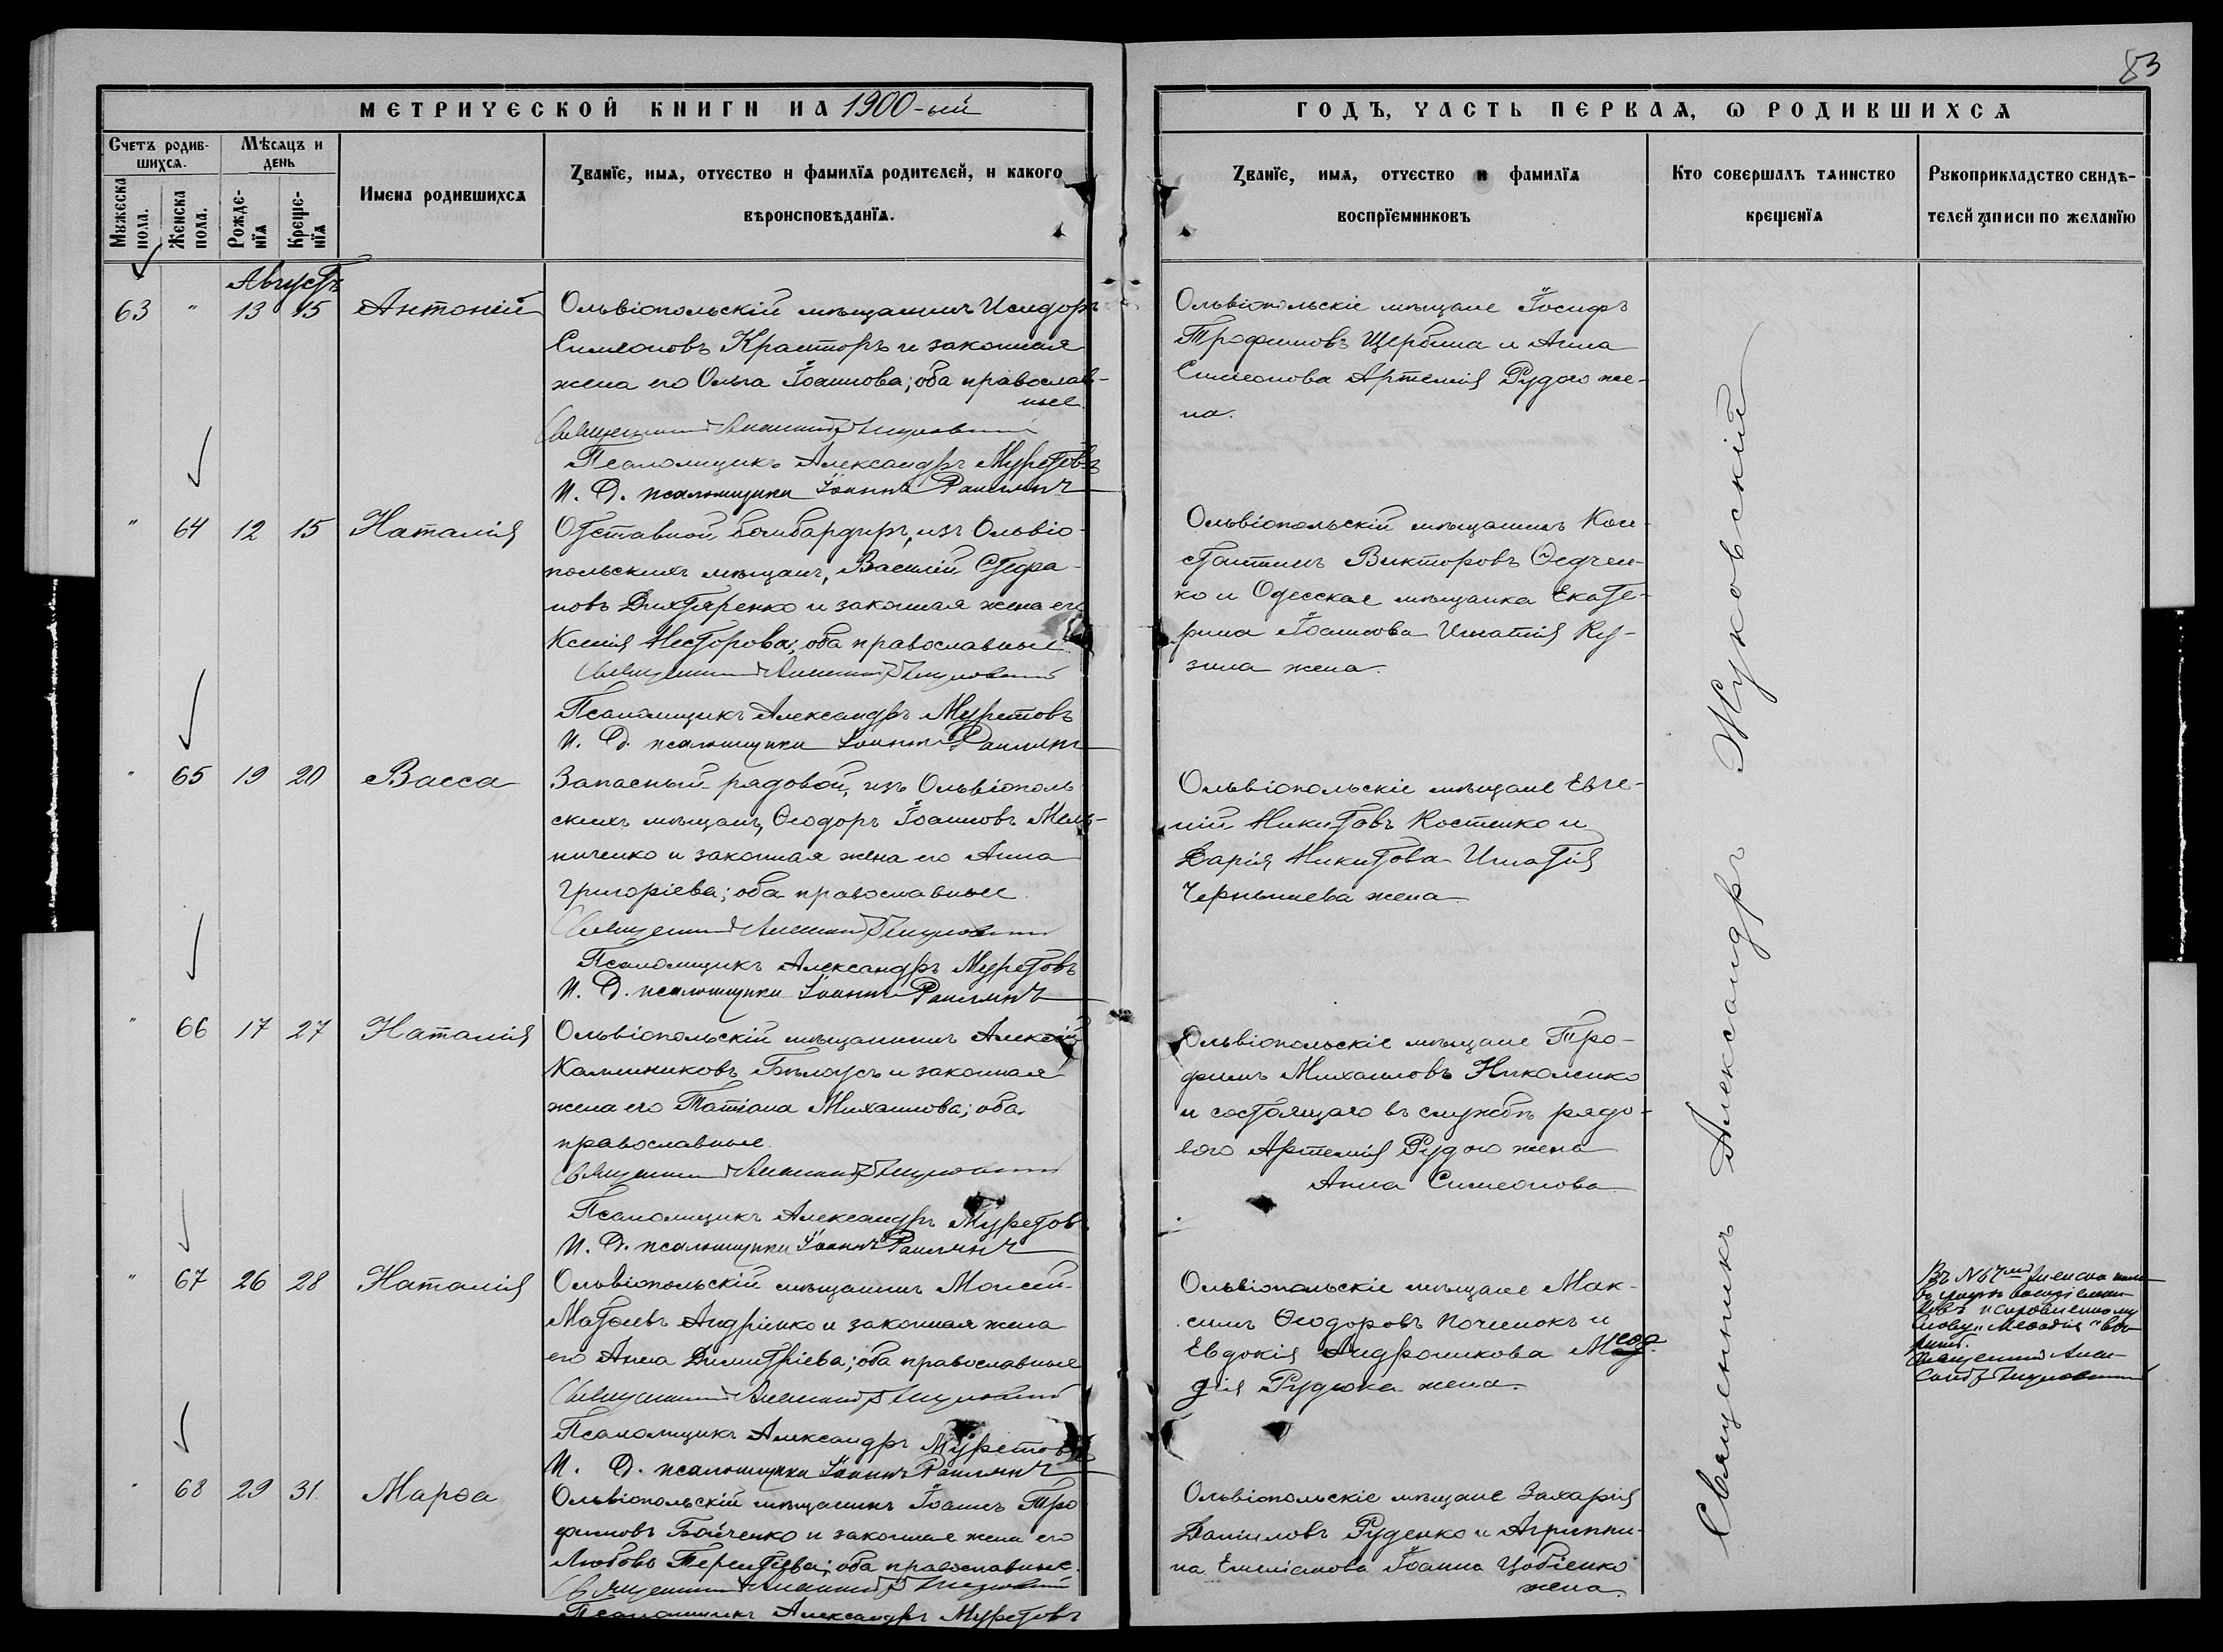 83
МЕТРИЧЕСКОЙ КНИГИ НА 1900-ый
Счетъ родив-
шихся.
Мѣсяцъ и
день
Мужеска
пола.
Женска
пола.
Рожде-
нїя
Креще-
нїя
Имена родившихся
Званїе, имя, отчество и фамилїя родителей, и какого
вѣроисповѣданїя.
ГОДЪ, ЧАСТЬ ПЕРВАЯ, Ѡ РОДИВШИХСЯ
Званїе, имя, отчество и фамилїя
воспрїемниковъ
Кто совершалъ таинство
крещенїя
Рукоприкладство свидѣ-
телей записи по желанїю
Августъ
63 " 13 15 Антоній
Ольвіопольскій мѣщанинъ Исидоръ
Симеоновъ Кранторъ и законная
жена его Ольга Іоаннова; оба православ-
ные.
Священникъ Александръ Жуковскій
Псаломщикъ Александръ Муретовъ
И. Д. псаломщика Іоаннъ
Ольвіопольскіе мѣщане Іосифъ
Трофимовъ Щербина и Анна
Симеонова Артемія Рудого же-
на.
" 64 12 15 Наталія
Отставной бомбардиръ, изъ Ольвіо-
польскихъ мѣщанъ, Василій Стефа-
новъ Дихтяренко и законная жена его
Ксенія Несторова; оба православные.
Священникъ Александръ Жуковскій
Псаломщикъ Александръ Муретовъ
И. Д. псаломщика Іоаннъ
Ольвіопольскій мѣщанинъ Кон-
стантинъ Викторовъ Ѳедчен-
ко и Одесская мѣщанка Екате-
рина Іоаннова Игнатія Ку-
зина жена.
" 65 19 20 Васса
Запасный рядовой, изъ Ольвіополь
скихъ мѣщанъ, Ѳеодоръ Іоанновъ Мель-
ниченко и законная жена его Анна
Григоріева; оба православные.
Священникъ Александръ Жуковскій
Псаломщикъ Александръ Муретовъ
И. Д. псаломщика Іоаннъ
Ольвіопольскіе мѣщане Евге-
ній Никитовъ Костенко и
Дарія Никитова Игнатія
Чернышева жена.
" 66 17 27 Наталія
Ольвіопольскій мѣщанинъ Алексій
Калинниковъ Бѣлоусъ и законная
жена его Татіана Михаилова; оба
православные.
Священникъ Александръ Жуковскій
Псаломщикъ Александръ Муретовъ
И. Д. псаломщика Іоаннъ
Ольвіопольскіе мѣщане Тро-
фимъ Михаиловъ Николенко
и состоящаго въ службѣ рядо-
вого Артемія Рудого жена
Анна Симеонова
" 67 26 28 Наталія
Ольвіопольскій мѣщанинъ Моисей
Матѳеевъ Андріенко и законная жена
его Анна Димитріева; оба православные
Священникъ Александръ Жуковскій
Псаломщикъ Александръ Муретовъ
И. Д. псаломщика Іоаннъ
Ольвіопольскіе мѣщане Мак-
симъ Ѳеодоровъ Починокъ и
Евдокія Андроникова Меѳо-
дія Рудюка жена.
Въ N 67
воспріемни-
ковъ исправленному
слову "Меѳодія" вѣ-
рить.
Священникъ Алек-
сандръ Жуковскій
" 68 29 31 Марѳа
Ольвіопольскій мѣщанинъ Іоаннъ Тро
фимовъ Бойченко и законная жена его
Любовь Терентіева; оба православные.
Священникъ Александръ Жуковскій
Псаломщикъ Александръ Муретовъ
Ольвіопольскіе мѣщане Захарія
Данииловъ Руденко и Агриппи-
на Емиліанова Іоанна Цобіенко
жена.
Священникъ Александръ Жуковскій